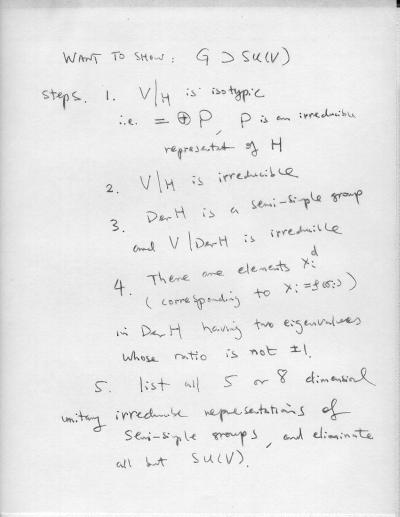 WANT TO SHOW: G ⊃ SU(V)
Steps. 1. V|H is isotypic
i.e. = ⊕ P, P is an irreducible
representat of H
2. V|H is irreducible
3. Der H is a semi-simple group
and V|Der H is irreducible
4. There are elements x_i^d
(corresponding to x_i = ρ(σ_i))
in Der H having two eigenvalues
whose ratio is not ±1.
5. list all 5 or 8 dimensional
unitary irreducible representations of
semi-simple groups, and eliminate
all but SU(V).